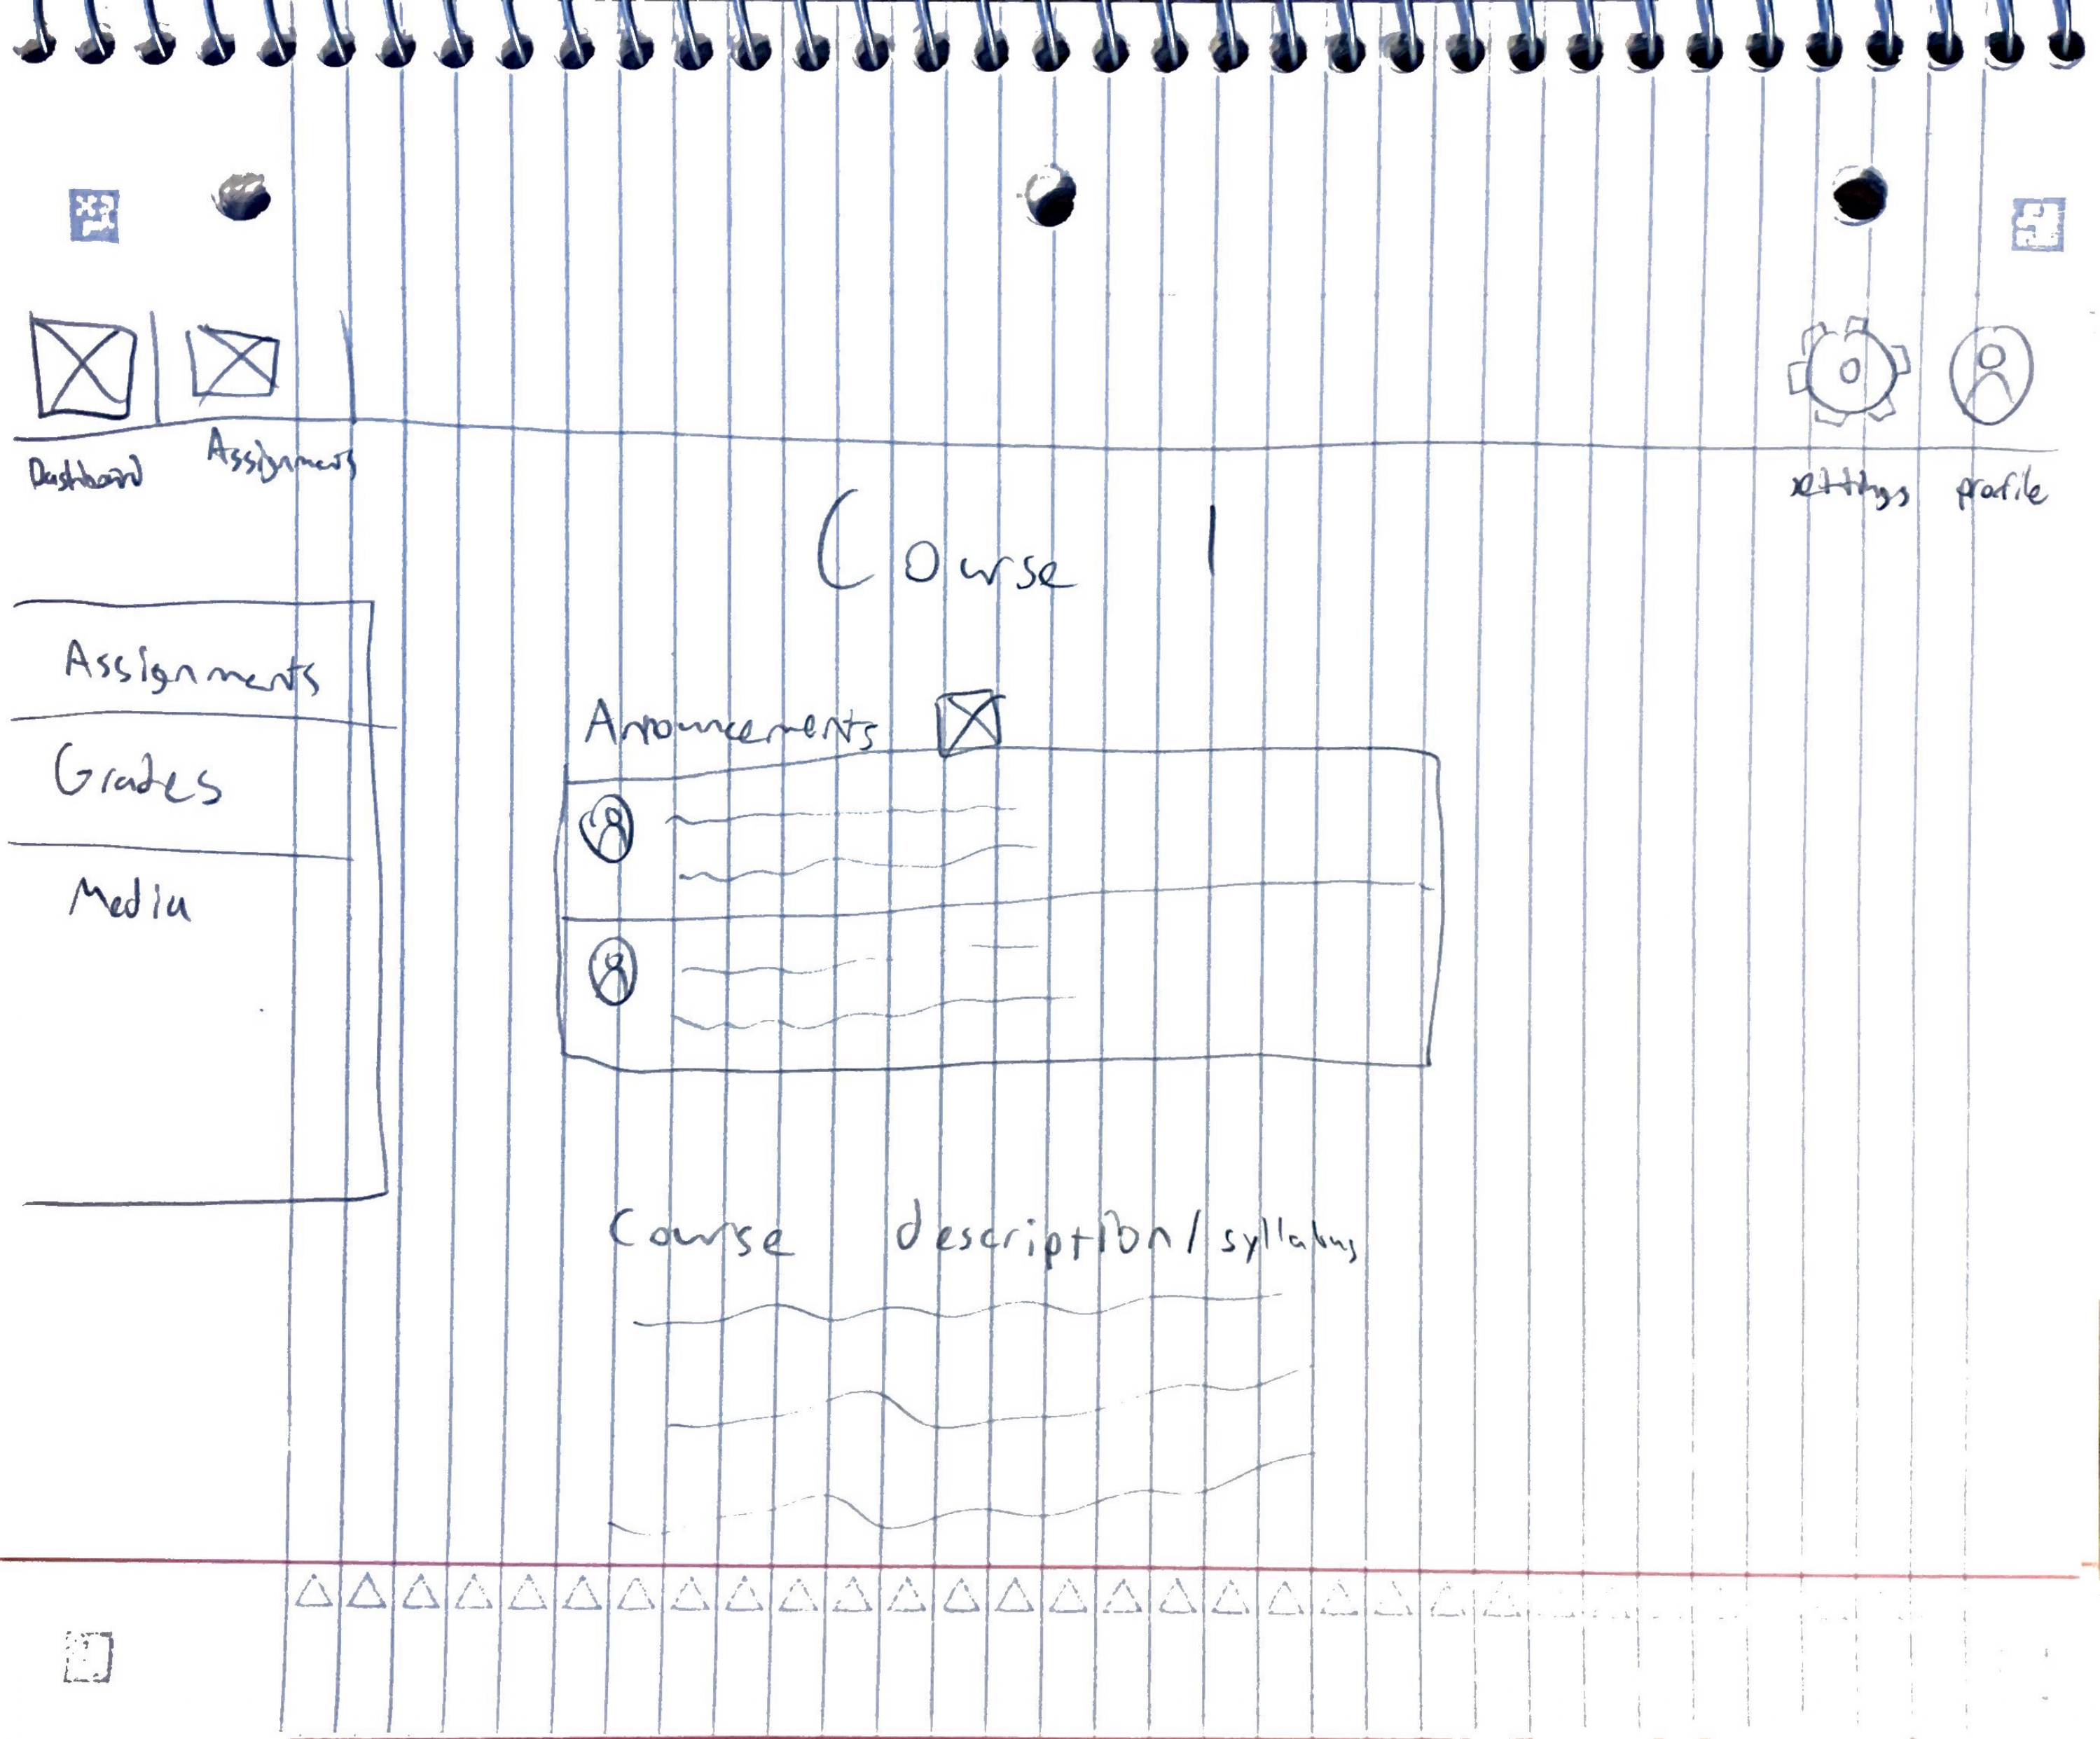 Dashboard
Assignments
settings
profile
Course 1
Assignments
Grades
Media
Announcements
Course description/syllabus